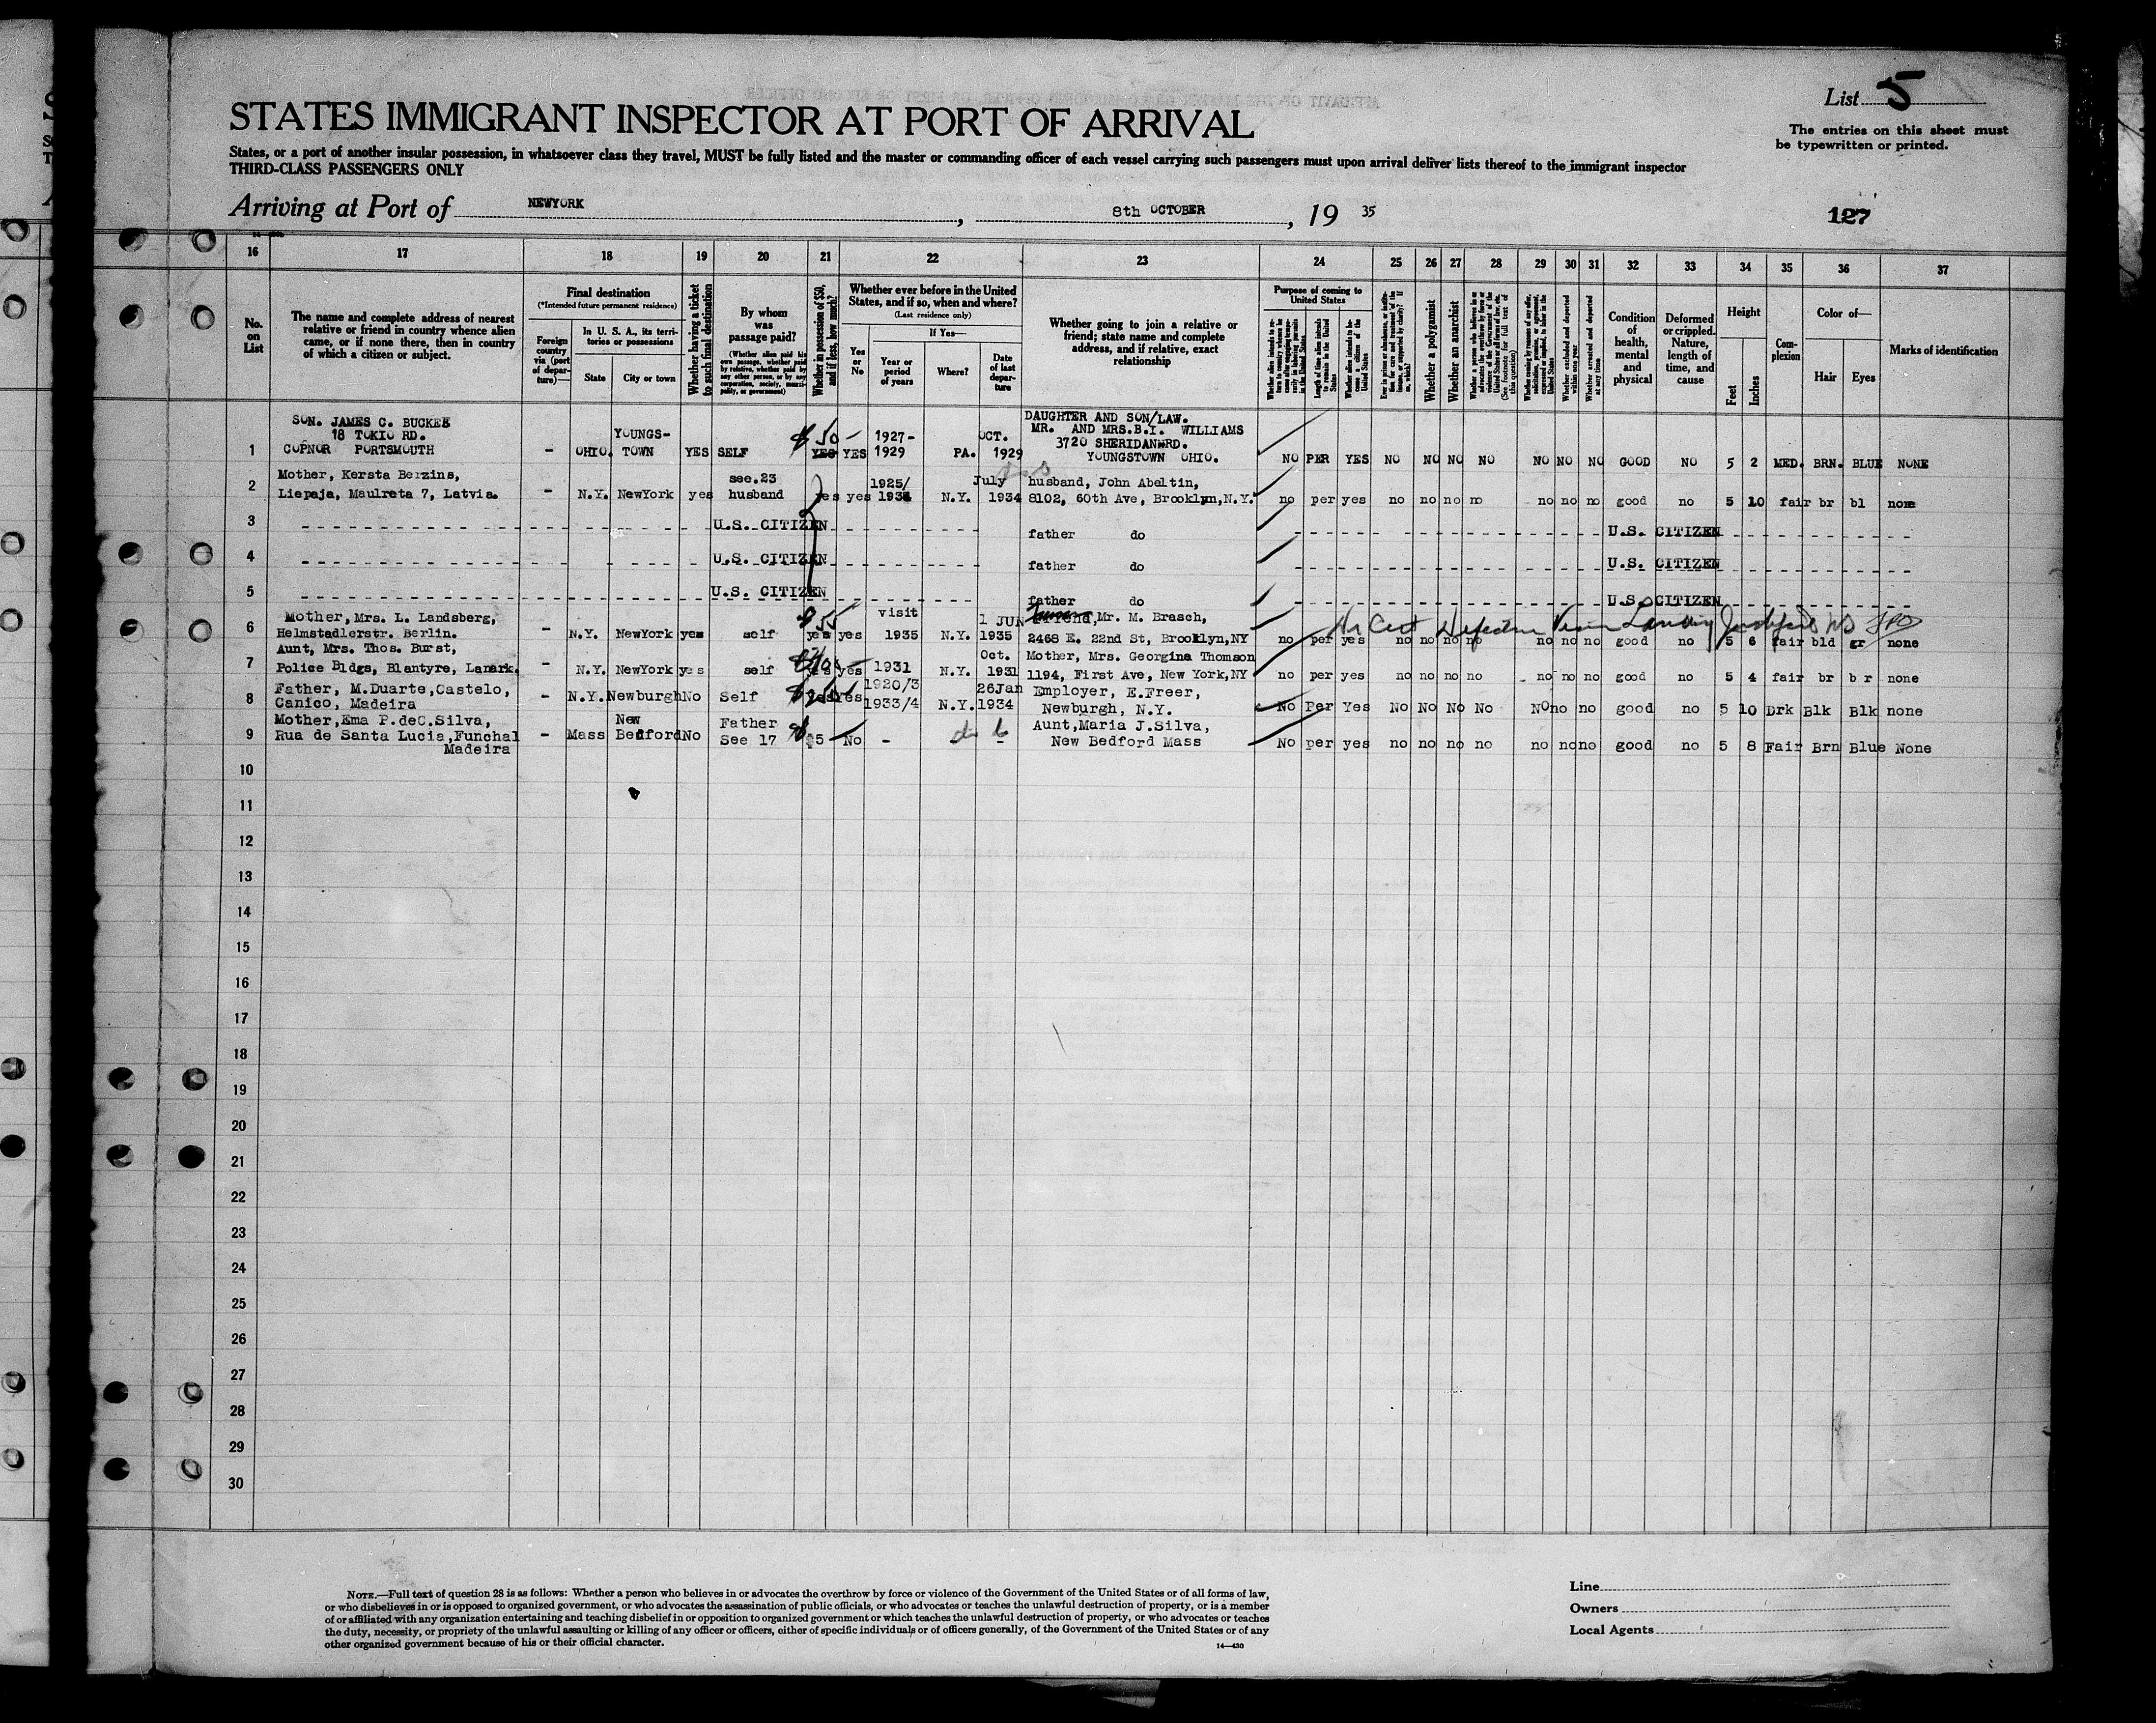 List 5
STATES IMMIGRANT INSPECTOR AT PORT OF ARRIVAL
The entries on this sheet must
be typewritten or printed.
States, or a port of another insular possession, in whatsoever class they travel, MUST be fully listed and the master or commanding officer of each vessel carrying such passengers must upon arrival deliver lists thereof to the immigrant inspector
THIRD-CLASS PASSENGERS ONLY
Arriving at Port of NEWYORK, 8th OCTOBER, 19 35
127
16 17 18 19 20 21 22 23 24 25 26 27 28 29 30 31 32 33 34 35 36 37
No. on List
The name and complete address of nearest relative or friend in country whence alien came, or if none there, then in country of which a citizen or subject.
Final destination
(*Intended future permanent residence)
Foreign country via (port of departure)—
In U. S. A., its territories or possessions
State
City or town
Whether having a ticket to such final destination
By whom was passage paid?
(Whether alien paid his own passage, whether paid by relative, whether paid by any other person, or by any corporation, society, municipality, or government)
Whether in possession of $50, and if less, how much?
Whether ever before in the United States, and if so, when and where?
(Last residence only)
Yes or No
If Yes—
Year or period of years
Where?
Date of last departure
Whether going to join a relative or friend; state name and complete address, and if relative, exact relationship
Purpose of coming to United States
Length of time alien intends to remain in the United States
Whether alien intends to become a citizen of the United States
Whether a polygamist
Whether an anarchist
Whether excluded and deported within one year
Whether arrested and deported at any time
Condition of health, mental and physical
Deformed or crippled. Nature, length of time, and cause
Height
Feet
Inches
Complexion
Color of—
Hair
Eyes
Marks of identification
SON. JAMES C. BUCKEE DAUGHTER AND SON/LAW.
18 TOKIO RD. YOUNGS- $50- 1927- OCT. MR. AND MRS.B.I. WILLIAMS
3720 SHERIDAN RD.
1 COPNOR PORTSMOUTH - OHIO. TOWN YES SELF YES YES 1929 PA. 1929 YOUNGSTOWN OHIO. NO PER YES NO NO NO NO NO NO NO GOOD NO 5 2 MED. BRN. BLUE NONE
Mother, Kersta Berzins, see.23 1925/ July husband, John Abeltin,
2 Liepaja, Maulreta 7, Latvia. - N.Y. NewYork yes husband yes yes 1934 N.Y. 1934 8102, 60th Ave, Brooklyn,N.Y. no per yes no no no no no no no good no 5 10 fair br bl none
3 U.S. CITIZEN father do U.S. CITIZEN
4 U.S. CITIZEN father do U.S. CITIZEN
5 U.S. CITIZEN father do U.S. CITIZEN
Mother, Mrs. L. Landsberg, $55 visit 1 JUN friend, Mr. M. Brasch, Cert Defective Vision Landing
6 Helmstadlerstr. Berlin. - N.Y. NewYork yes self yes yes 1935 N.Y. 1935 2468 E. 22nd St, Brooklyn,NY no per yes no no no no no no no good no 5 6 fair bld gr none
Aunt, Mrs. Thos. Burst, Oct. Mother, Mrs. Georgina Thomson
7 Police Bldgs, Blantyre, Lanark. - N.Y. NewYork yes self yes 1931 N.Y. 1931 1194, First Ave, New York,NY no per yes no no no no no no no good no 5 4 fair br br none
Father, M.Duarte,Castelo, 1920/3 26Jan Employer, E.Freer,
8 Canico, Madeira - N.Y. Newburgh No Self Yes Yes 1933/4 N.Y. 1934 Newburgh, N.Y. No Per Yes No No No No No no no good no 5 10 Drk Blk Blk none
Mother,Ema P.deC.Silva, New Father Aunt,Maria J.Silva,
9 Rua de Santa Lucia,Funchal - Mass Bedford No See 17 5 No - - New Bedford Mass No per yes no no no no no no no good no 5 8 Fair Brn Blue None
Madeira
10
11
12
13
14
15
16
17
18
19
20
21
22
23
24
25
26
27
28
29
30
NOTE.—Full text of question 28 is as follows: Whether a person who believes in or advocates the overthrow by force or violence of the Government of the United States or of all forms of law,
or who disbelieves in or is opposed to organized government, or who advocates the assassination of public officials, or who advocates or teaches the unlawful destruction of property, or is a member
of or affiliated with any organization entertaining and teaching disbelief in or opposition to organized government or which teaches the unlawful destruction of property, or who advocates or teaches
the duty, necessity, or propriety of the unlawful assaulting or killing of any officer or officers, either of specific individuals or of officers generally, of the Government of the United States or of any
other organized government because of his or their official character.
14—430
Line
Owners
Local Agents